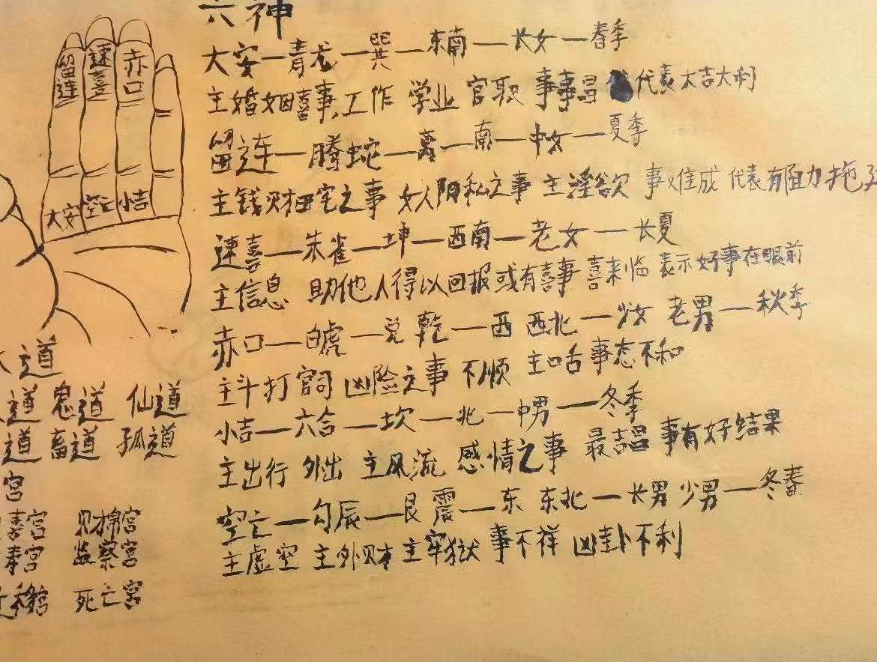 六神
大安一青龙一巽一东南一长女一春季
主婚姻喜事,工作 学业 官职 事事昌 代表大吉大利
留连一腾蛇一离一南一中女一夏季
主钱财田宅之事 女人阴私之事 主淫欲 事难成 代表有阻力拖
速喜一朱雀一坤一西南一老女一长夏
主信息 助他人得以回报或有喜事 喜来临 表示好事在眼前
赤口一白虎一兑 乾一西 西北一少女 老男一秋季
主斗打官司 凶险之事 不顺 主口舌 事态不和
小吉一六合一坎一北一中男一冬季
主出行 外出 主风流 感情之事 最吉昌 事有好结果
空亡一勾辰一艮 震一东 东北一长男 少男一冬春
主虚空 主外财 主牢狱 事不祥 凶卦不利
留连 速喜 赤口
大安 空亡 小吉
道
道 鬼道 仙道
道 畜道 孤道
宫
宫 财帛宫
宫 监察宫
宫 死亡宫